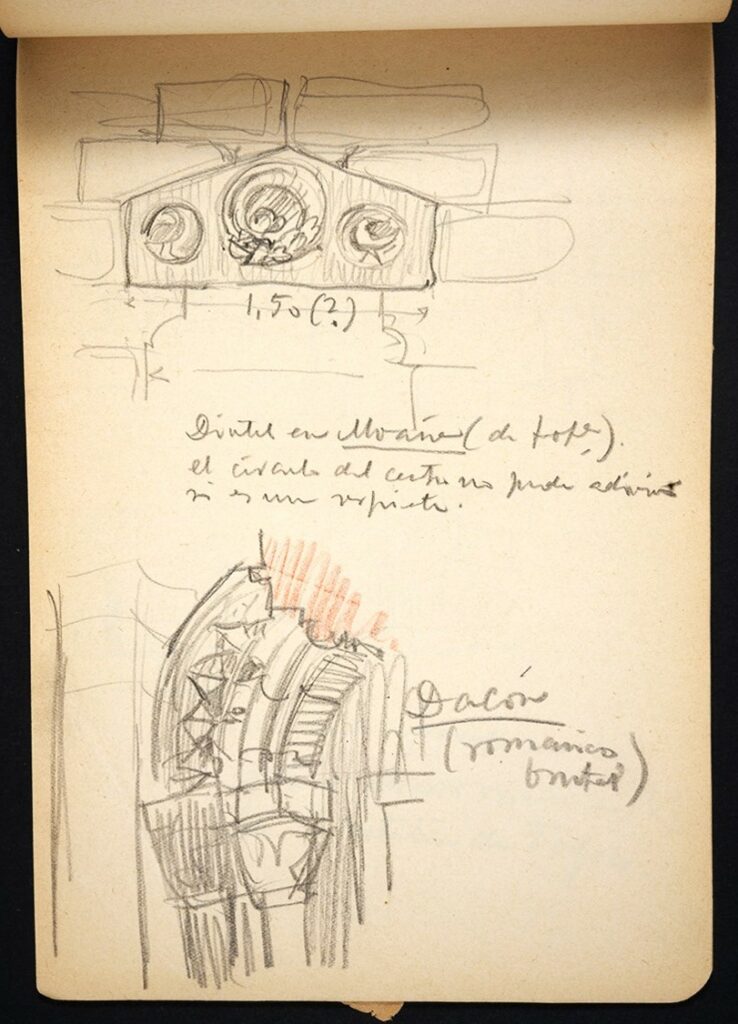 1,50 (?)
Dintel en Moaña (de tope).
el círculo del centro no pude adivinar
si es un respiete.
Dacón
(románico
brutal)